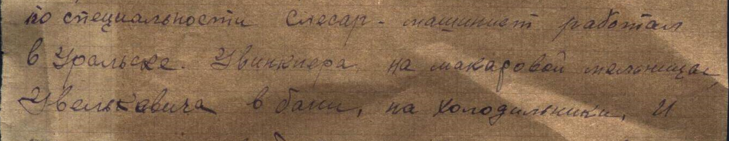 по специальности слесар-машинист работал
в Уральске. Увинклера на макаровой мельницах,
Увелькавича в бани, на холодильники, И